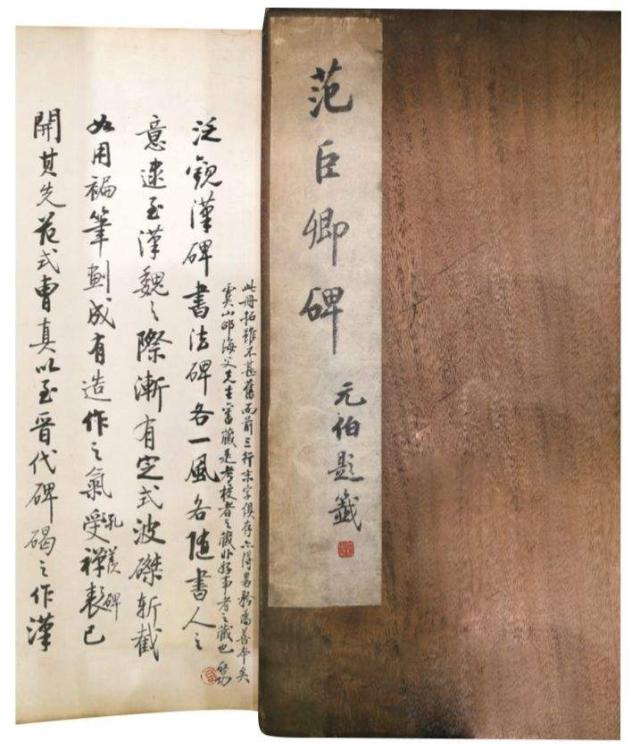 范巨卿碑
元伯題籤
此冊拓雖不甚舊而前三行末字俱存亦得為善本矣
虞山邵海父先生舊藏是考校者之藏非好事者之藏也
泛觀漢碑書法碑各一風各隨書人之
意逮至漢魏之際漸有定式波磔斬截
如用褊筆劃成有造作之氣受禪表已
孔羨碑
開其先范式曹真以至晉代碑碣之作漢